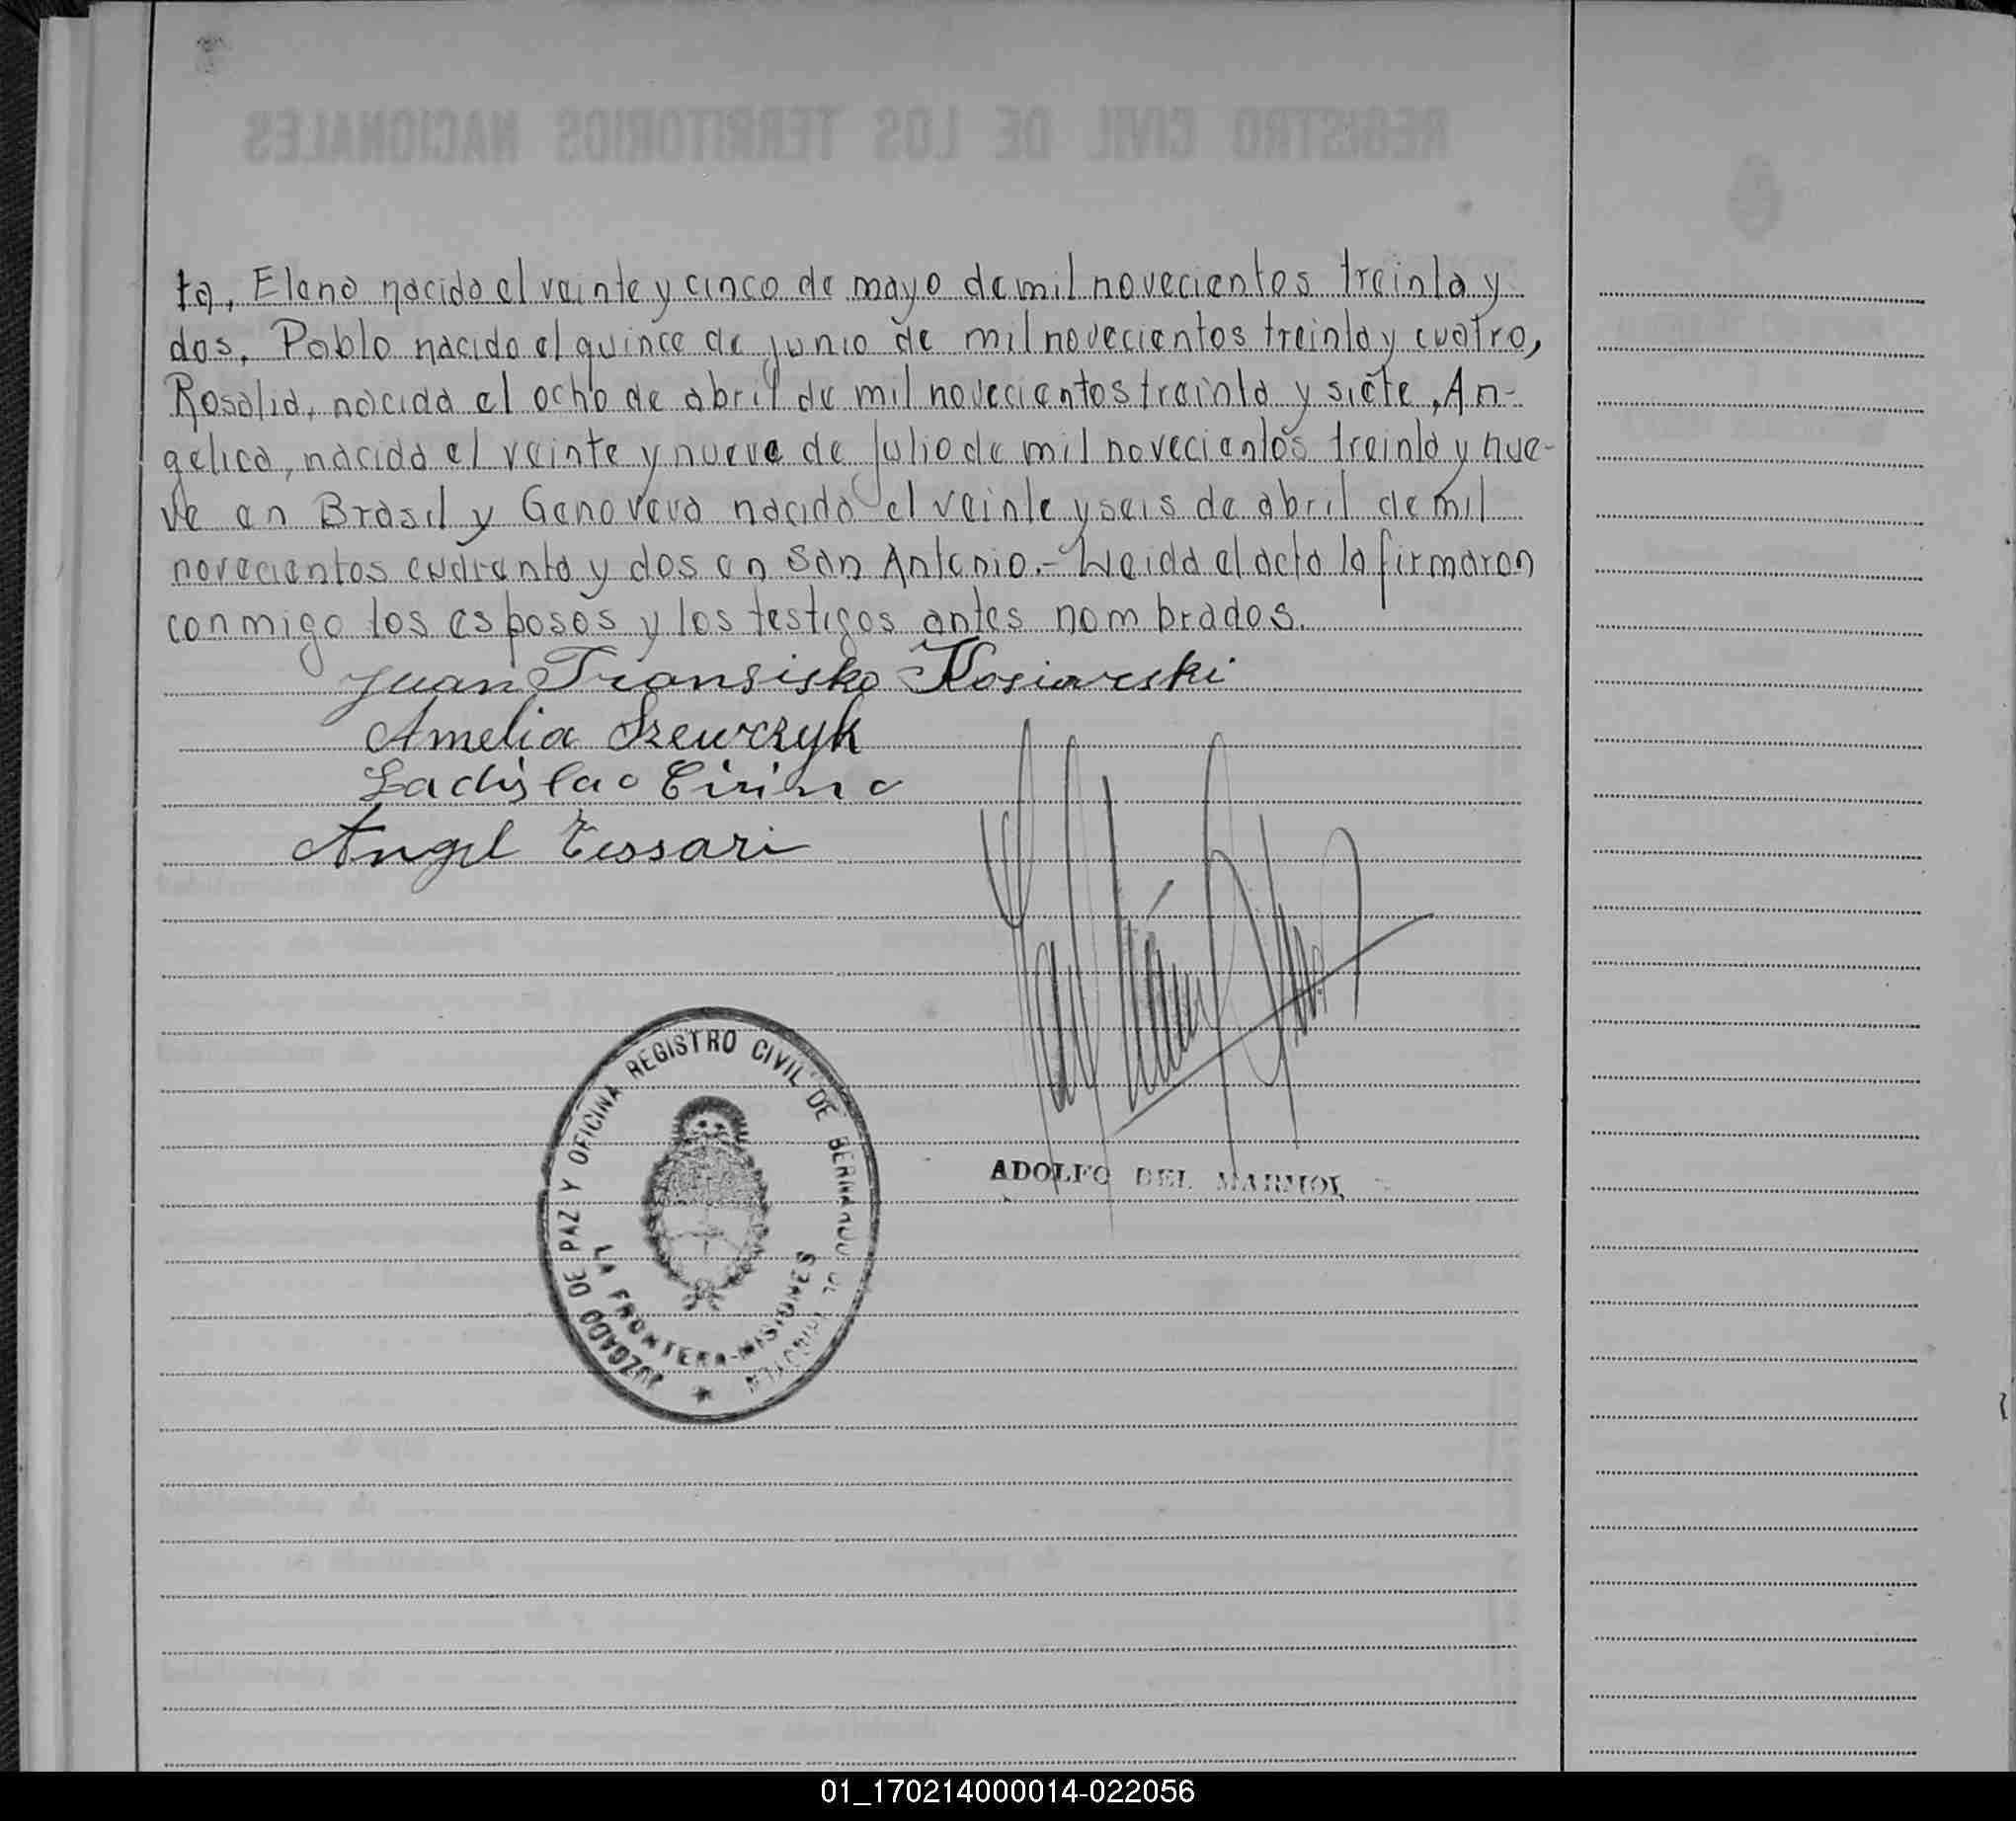 ta, Elena nacida el veinte y cinco de mayo de mil novecientos treinta y
dos, Pablo nacido el quince de junio de mil novecientos treinta y cuatro,
Rosalia, nacida el ocho de abril de mil novecientos treinta y siete, An-
gelica, nacida el veinte y nueve de Julio de mil novecientos treinta y nue-
ve en Brasil y Genoveva nacida el veinte y seis de abril de mil
novecientos cuarenta y dos en San Antonio.- Leida el acta la firmaron
conmigo los esposos y los testigos antes nombrados.
Juan Fransisko Kosiarski
Amelia Szewczyk
Ladislao
Angel Tessari
ADOLFO DEL MARMOL
JUZGADO DE PAZ Y OFICINA REGISTRO CIVIL DE BERNARDO DE IRIGOYEN
LA FRONTERA-MISIONES
REGISTRO CIVIL DE LOS TERRITORIOS NACIONALES
01_170214000014-022056